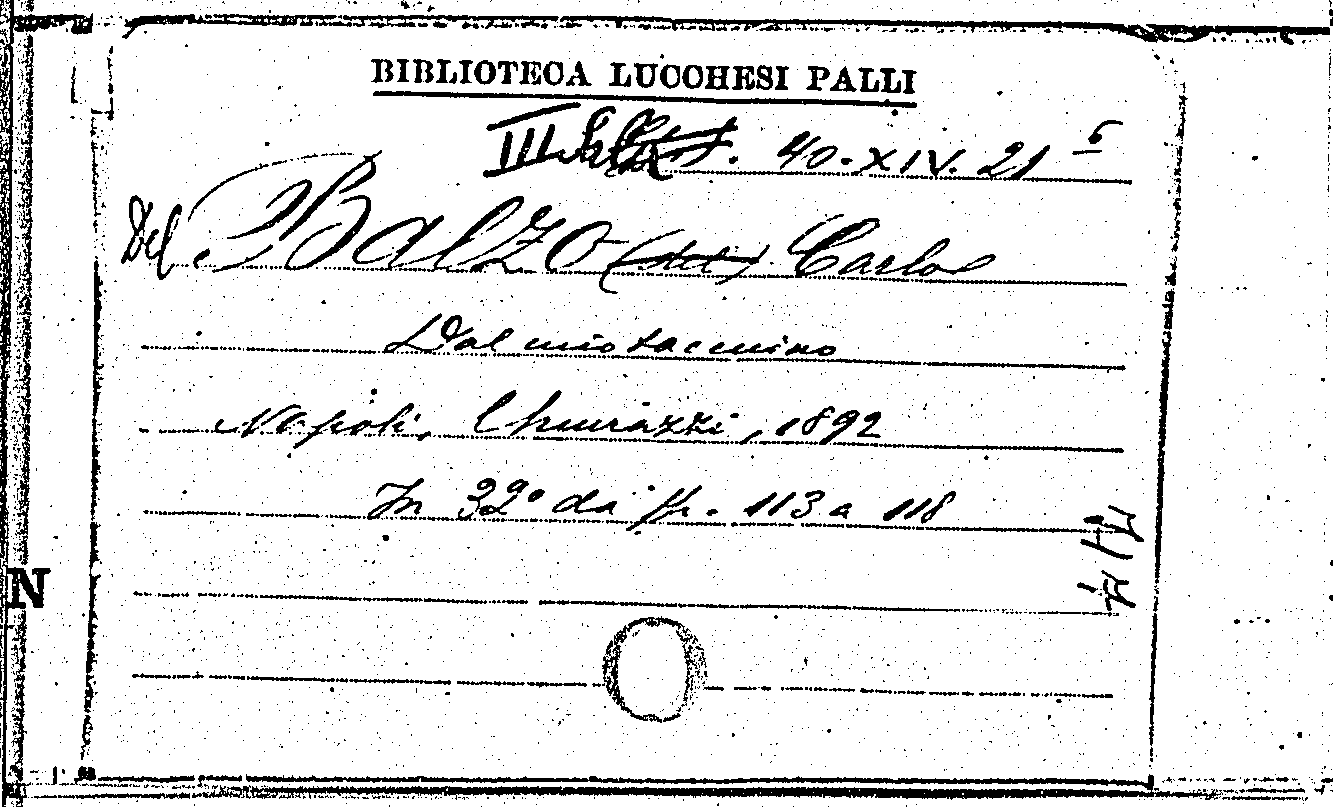 BIBLIOTECA LUCCHESI PALLI
III Sala. 40. XIV. 21 6
Del Balzo (del) Carlo
Dal mio taccuino
Napoli, Chiurazzi, 1892
In 32º da pp. 113 a 118
N